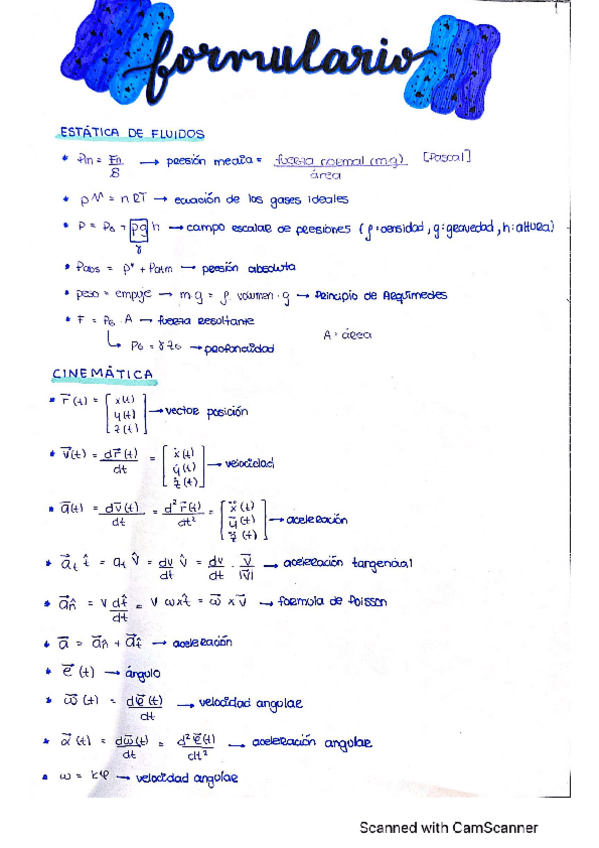 formulario
ESTÁTICA DE FLUIDOS
• Pm = Fn/S → presión media = fuerza normal (m·g)/área [Pascal]
• pM = nRT → ecuación de los gases ideales
• P = P₀ + ρg h → campo escalar de presiones (ρ=densidad, g:gravedad, h:altura)
γ
• Pabs = P* + Patm → presión absoluta
• peso = empuje → m·g = ρ·volumen·g → Principio de Arquímedes
• F = PG · A → fuerza resultante
A: área
↳ PG = γzG → profundidad
CINEMÁTICA
• r⃗(t) = [x(t) y(t) z(t)] → vector posición
• v⃗(t) = dr⃗(t)/dt = [ẋ(t) ẏ(t) ż(t)] → velocidad
• a⃗(t) = dv⃗(t)/dt = d²r⃗(t)/dt² = [ẍ(t) ÿ(t) z̈(t)] → aceleración
• a⃗t t̂ = at v̂ = dv/dt v̂ = dv/dt · v⃗/|v⃗| → aceleración tangencial
• a⃗n̂ = v dt̂/dt = v ω×t̂ = ω⃗ × v⃗ → formula de Poisson
• a⃗ = a⃗n̂ + a⃗t̂ → aceleración
• φ⃗(t) → ángulo
• ω⃗(t) = dφ⃗(t)/dt → velocidad angular
• α⃗(t) = dω⃗(t)/dt = d²φ⃗(t)/dt² → aceleración angular
• ω = kφ → velocidad angular
Scanned with CamScanner